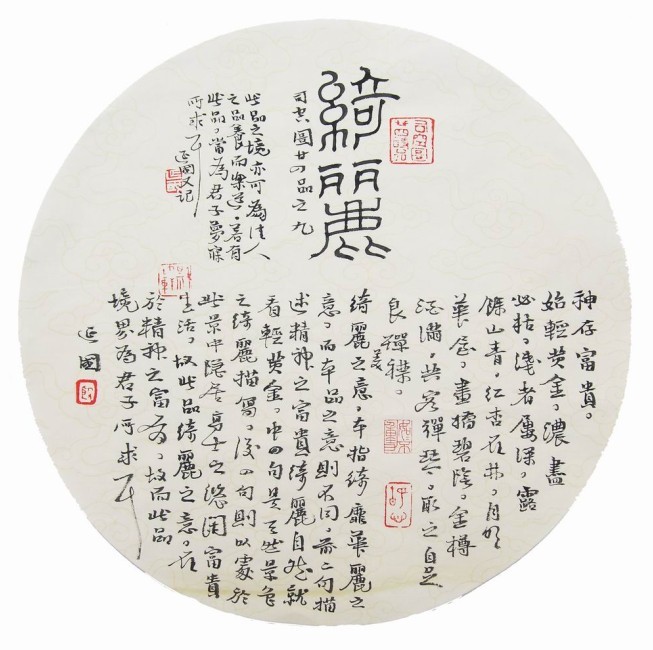 綺麗
司空圖廿四品之九
此品之境亦可為佳人
之品養而樂道,若有
此品,當為君子夢寐
所求耳
延國又記
神存富貴。
始輕黄金,濃盡
必枯,淺者屢深,露
餘山青,紅杏在林,月明
華屋,畫橋碧陰,金樽
酒滿,共客彈琴,取之自足
良殫美襟。
綺麗之意,本指綺靡華麗之
意,而本品之意則不同,前二句描
述精神之富貴綺麗自然就
看輕黄金,中四句是天然景色
之綺麗描寫,後四句則以處於
此景中隱居高士之悠閒富貴
生活,故此品綺麗之意,在
於精神之富有,故而此品
境界為君子所求耳
延國